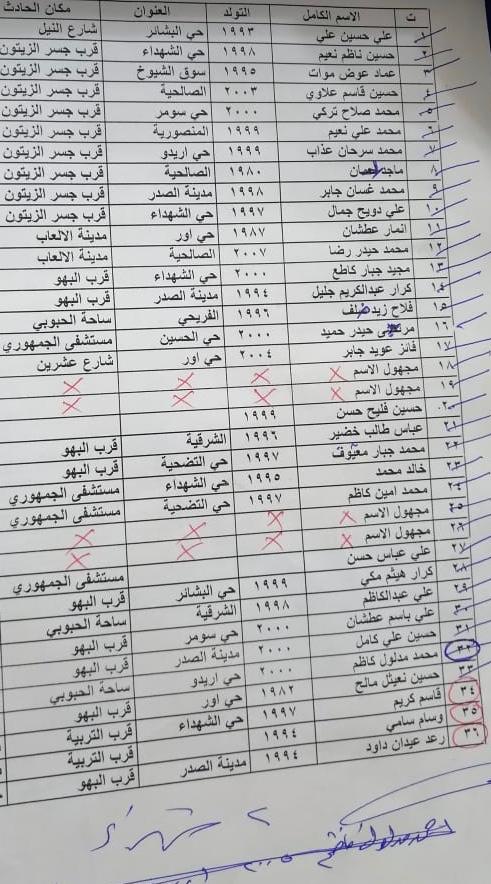 ت الاسم الكامل التولد العنوان مكان الحادث
١ علي حسين علي ١٩٩٣ حي البشائر شارع النيل
٢ حسين ناظم نعيم ١٩٩٨ حي الشهداء قرب جسر الزيتون
٣ عماد عوض موات ١٩٩٥ سوق الشيوخ قرب جسر الزيتون
٤ حسين قاسم علاوي ٢٠٠٣ الصالحية قرب جسر الزيتون
٥ محمد صلاح تركي ٢٠٠٠ حي سومر قرب جسر الزيتون
٦ محمد علي نعيم ١٩٩٩ المنصورية قرب جسر الزيتون
٧ محمد سرحان عذاب ١٩٩٩ حي اريدو قرب جسر الزيتون
٨ ماجد ١٩٨٠ الصالحية قرب جسر الزيتون
٩ محمد غسان جابر ١٩٩٨ مدينة الصدر قرب جسر الزيتون
١٠ علي دويج جمال ١٩٩٧ حي الشهداء قرب جسر الزيتون
١١ انمار عطشان ١٩٨٧ حي اور مدينة الالعاب
١٢ محمد حيدر رضا ٢٠٠٧ الصالحية مدينة الالعاب
١٣ مجيد جبار كاطع ٢٠٠٠ حي الشهداء قرب البهو
١٤ كرار عبدالكريم جليل ١٩٩٤ مدينة الصدر قرب البهو
١٥ فلاح زيد ١٩٩٦ الفريحي ساحة الحبوبي
١٦ حيدر حميد ٢٠٠٠ حي الحسين مستشفى الجمهوري
١٧ فائز عويد جابر ٢٠٠٤ حي اور شارع عشرين
١٨ مجهول الاسم
١٩ مجهول الاسم
٢٠ حسين فليح حسن ١٩٩٩
٢١ عباس طالب خضير ١٩٩٦ الشرقية قرب البهو
٢٢ محمد جبار معيوف ١٩٩٧ حي التضحية قرب البهو
٢٣ خالد محمد ١٩٩٥ حي الشهداء مستشفى الجمهوري
٢٤ محمد امين كاظم ١٩٩٧ حي التضحية مستشفى الجمهوري
٢٥ مجهول الاسم
٢٦ مجهول الاسم
٢٧ علي عباس حسن
٢٨ كرار هيثم مكي ١٩٩٩ حي البشائر مستشفى الجمهوري
٢٩ علي عبدالكاظم ١٩٩٨ الشرقية قرب البهو
٣٠ علي باسم عطشان ٢٠٠٠ حي سومر ساحة الحبوبي
٣١ حسين علي كامل ٢٠٠٠ مدينة الصدر قرب البهو
٣٢ محمد مدلول كاظم ٢٠٠٠ حي اريدو قرب البهو
٣٣ حسين نعيثل مالح ١٩٨٢ حي اور ساحة الحبوبي
٣٤ قاسم كريم ١٩٩٧ حي الشهداء قرب البهو
٣٥ وسام سامي ١٩٩٤ قرب التربية
٣٦ رعد عيدان داود ١٩٩٤ مدينة الصدر قرب التربية
قرب البهو